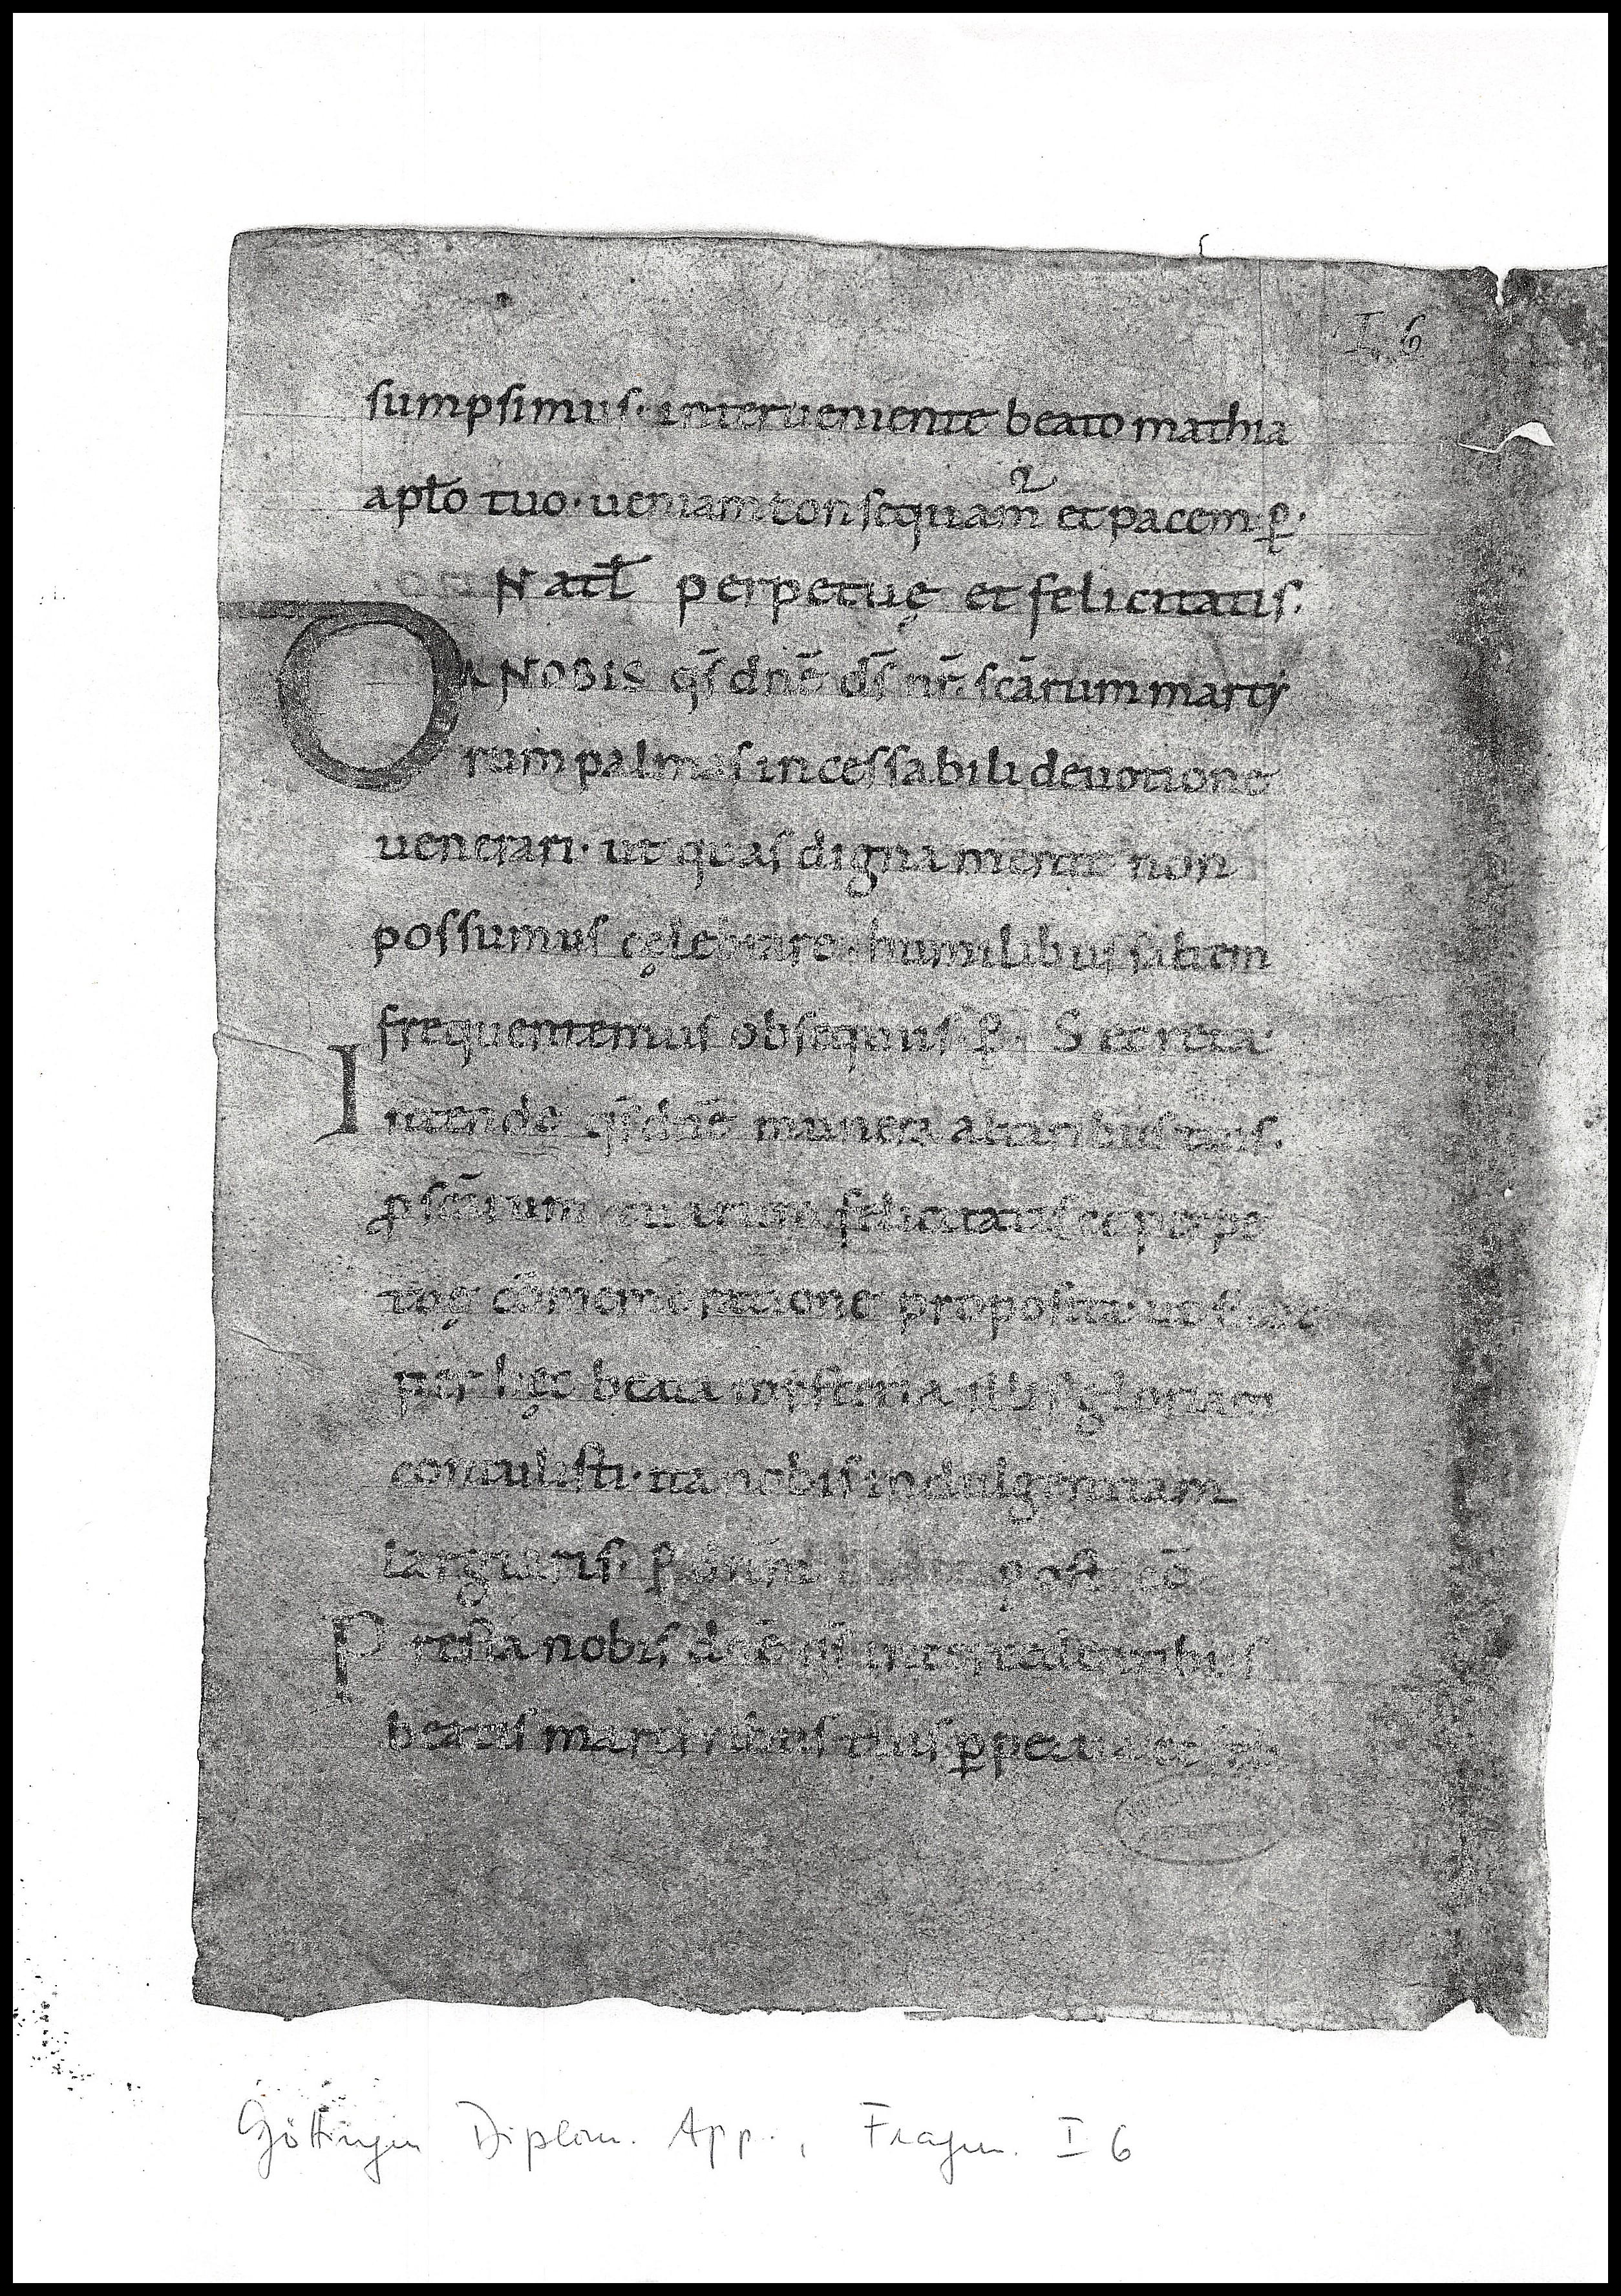 I 6
sumpsimus· interueniente beato mathia
apło tuo· ueniam consequam² et pacem p̲·
Natł perpetuę et felicitatis.
DA NOBIS qs̄ dn̄e ds̄ nr̄ sc̄arum marty
rum palmas incessabili deuotione
uenerari· ut quas digna mente non
possumus cęlebrare· humilibus saltem
frequentemus obsequiis p̲· Secreta
Intende qs̄ dn̄e munera altaribus tuis.
ꝓ sc̄arum tuarum felicitatis et perpe
tuę cōmemoratione proposita· ut sicut
per hęc beata mysteria illis gloriam
contulisti· ita nobis indulgentiam
largiaris· p̲ dnm̄ post cō
Presta nobis dn̄e qs̄ intercedentibus
beatis martiribus tuis ꝑpetua et
Göttingen Diplom. App., Fragm. I 6